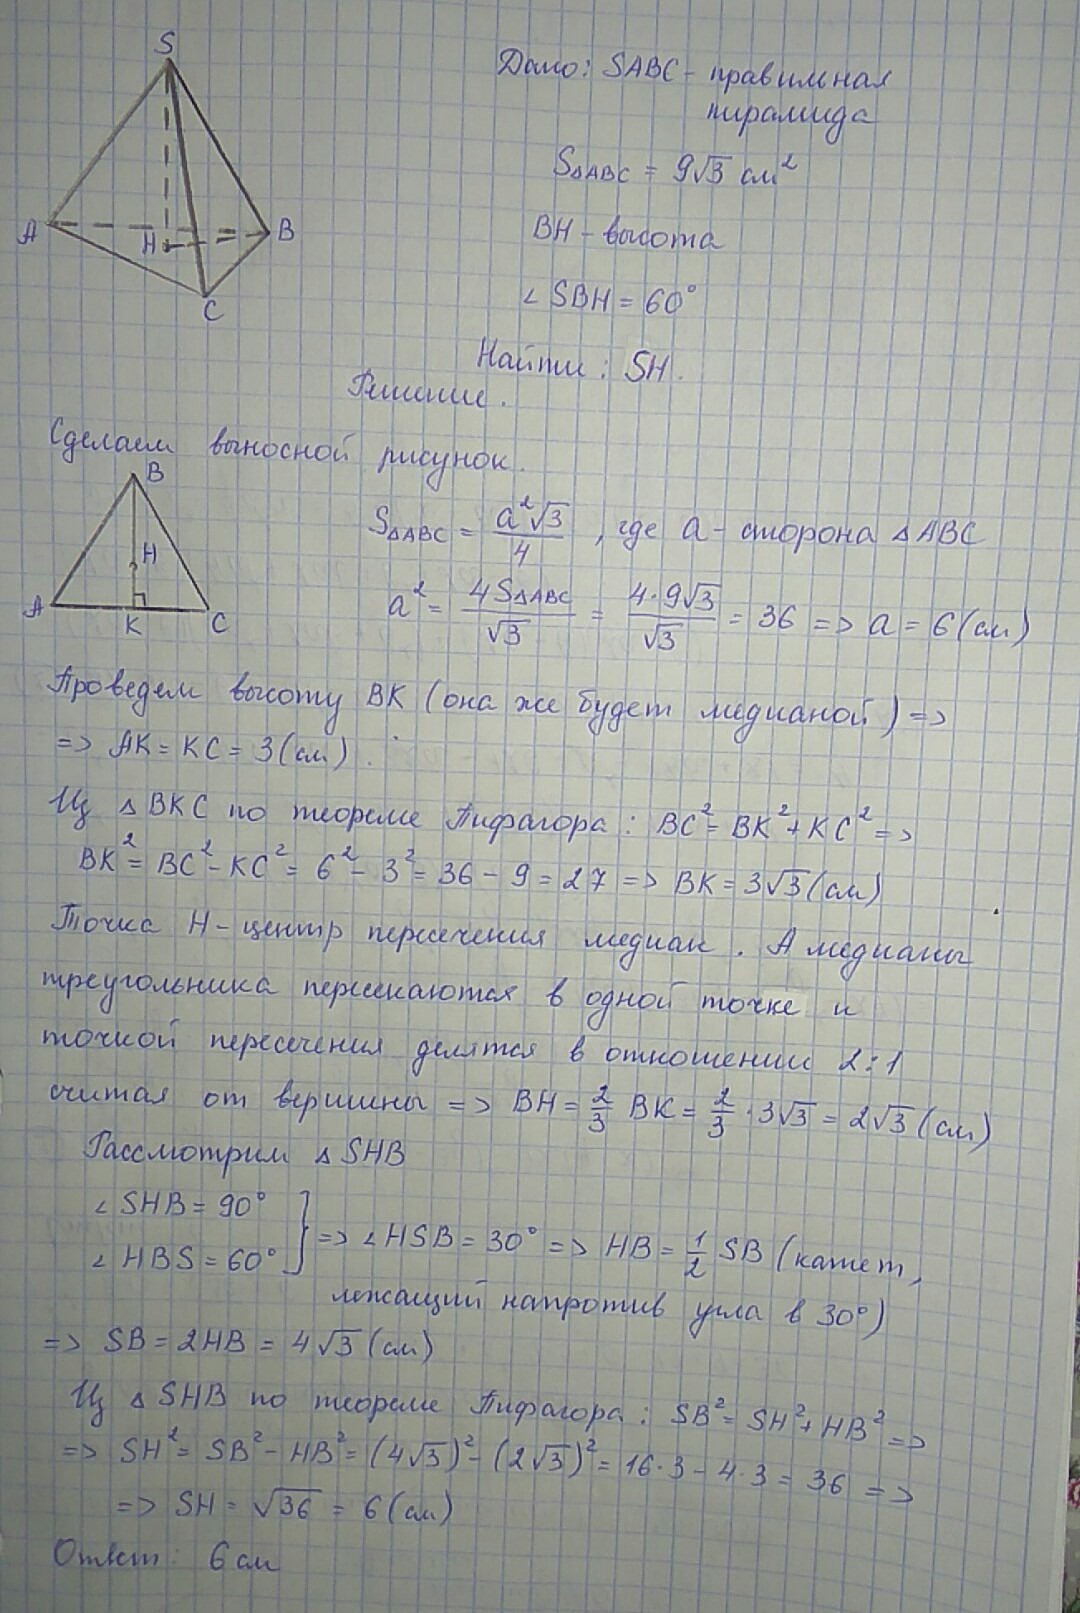 S
A
H
B
C
Дано: SABC - правильная
пирамида
S△ABC = 9√3 см²
BH - высота
∠ SBH = 60°
Найти: SH.
Решение.
Сделаем выносной рисунок.
B
H
A
K
C
S△ABC = a²√3/4, где a - сторона △ABC
a² = 4S△ABC/√3 = 4·9√3/√3 = 36 => a = 6 (см)
Проведем высоту BK (она же будет медианой) =>
=> AK = KC = 3 (см).
Из △BKC по теореме Пифагора: BC² = BK² + KC² =>
BK² = BC² - KC² = 6² - 3² = 36 - 9 = 27 => BK = 3√3 (см)
Точка H - центр пересечения медиан. А медианы
треугольника пересекаются в одной точке и
точкой пересечения делятся в отношении 2:1
считая от вершины => BH = 2/3 BK = 2/3 · 3√3 = 2√3 (см)
Рассмотрим △SHB
∠ SHB = 90°
∠ HBS = 60° } => ∠HSB = 30° => HB = 1/2 SB (катет,
лежащий напротив угла в 30°)
=> SB = 2HB = 4√3 (см)
Из △SHB по теореме Пифагора: SB² = SH² + HB² =>
=> SH² = SB² - HB² = (4√3)² - (2√3)² = 16·3 - 4·3 = 36 =>
=> SH = √36 = 6 (см)
Ответ: 6 см